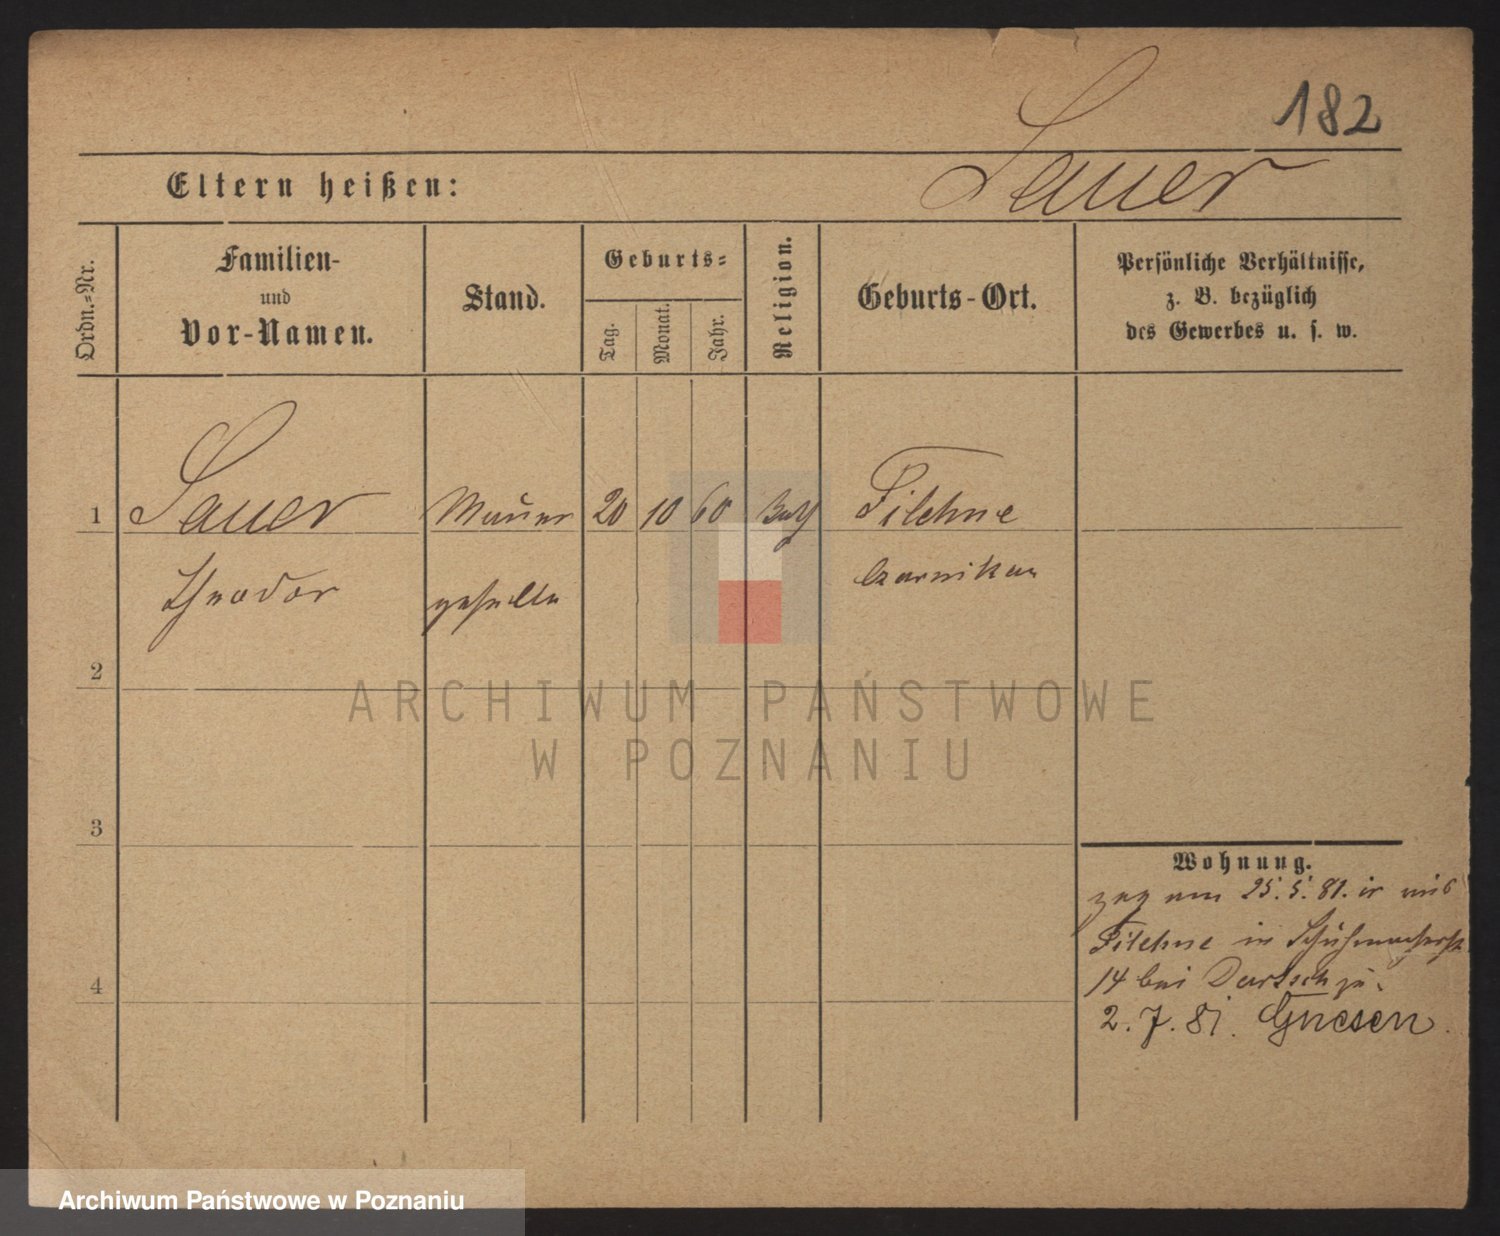 182
Sauer
Eltern heißen:
Ordn.=Nr.
Familien-
und
Vor-Namen.
Stand.
Geburts=
Tag.
Monat.
Jahr.
Religion.
Geburts-Ort.
Persönliche Verhältnisse,
z. B. bezüglich
des Gewerbes u. s. w.
1 Sauer Maurer 20 10 60 Filehne
Theodor geselle Czarnikau
2
ARCHIWUM PAŃSTWOWE
W POZNANIU
3
Wohnung.
zog am 25.5.81. in aus
Filehne in Schuhmacherst.
14 bei Dartsch zu.
4
2.7.81. Gnesen.
Archiwum Państwowe w Poznaniu